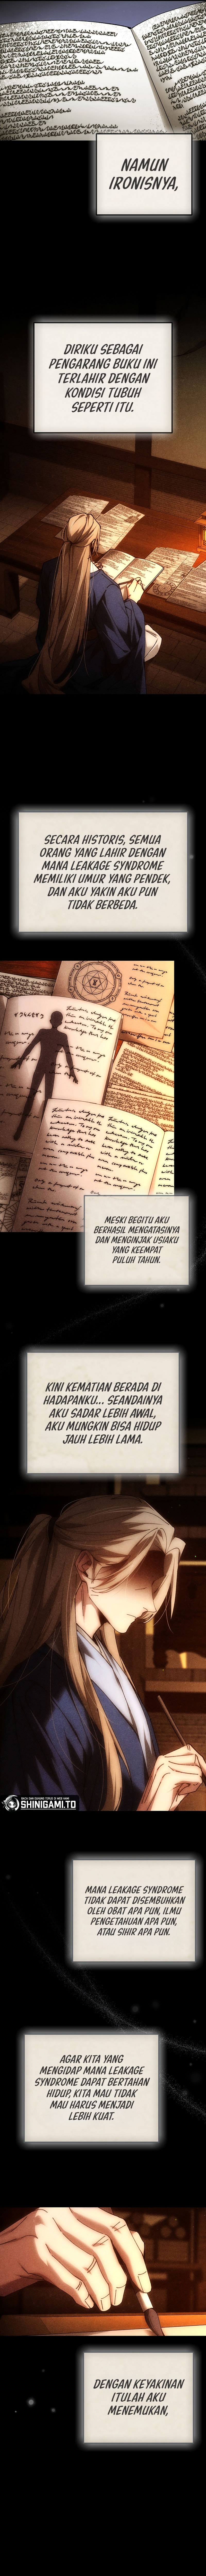 NAMUN
IRONISNYA,
DIRIKU SEBAGAI
PENGARANG BUKU INI
TERLAHIR DENGAN
KONDISI TUBUH
SEPERTI ITU.
SECARA HISTORIS, SEMUA
ORANG YANG LAHIR DENGAN
MANA LEAKAGE SYNDROME
MEMILIKI UMUR YANG PENDEK,
DAN AKU YAKIN AKU PUN
TIDAK BERBEDA.
MESKI BEGITU AKU
BERHASIL MENGATASINYA
DAN MENGINJAK USIAKU
YANG KEEMPAT
PULUH TAHUN.
KINI KEMATIAN BERADA DI
HADAPANKU... SEANDAINYA
AKU SADAR LEBIH AWAL,
AKU MUNGKIN BISA HIDUP
JAUH LEBIH LAMA.
SHINIGAMI.TO
MANA LEAKAGE SYNDROME
TIDAK DAPAT DISEMBUHKAN
OLEH OBAT APA PUN, ILMU
PENGETAHUAN APA PUN,
ATAU SIHIR APA PUN.
AGAR KITA YANG
MENGIDAP MANA LEAKAGE
SYNDROME DAPAT BERTAHAN
HIDUP, KITA MAU TIDAK
MAU HARUS MENJADI
LEBIH KUAT.
DENGAN KEYAKINAN
ITULAH AKU
MENEMUKAN,